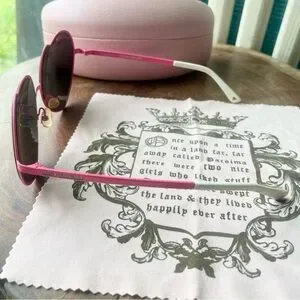 Once upon a time
in a land far, far
away called Pacoima
there were two nice
girls who liked stuff
swept
the land & they lived
happily ever after